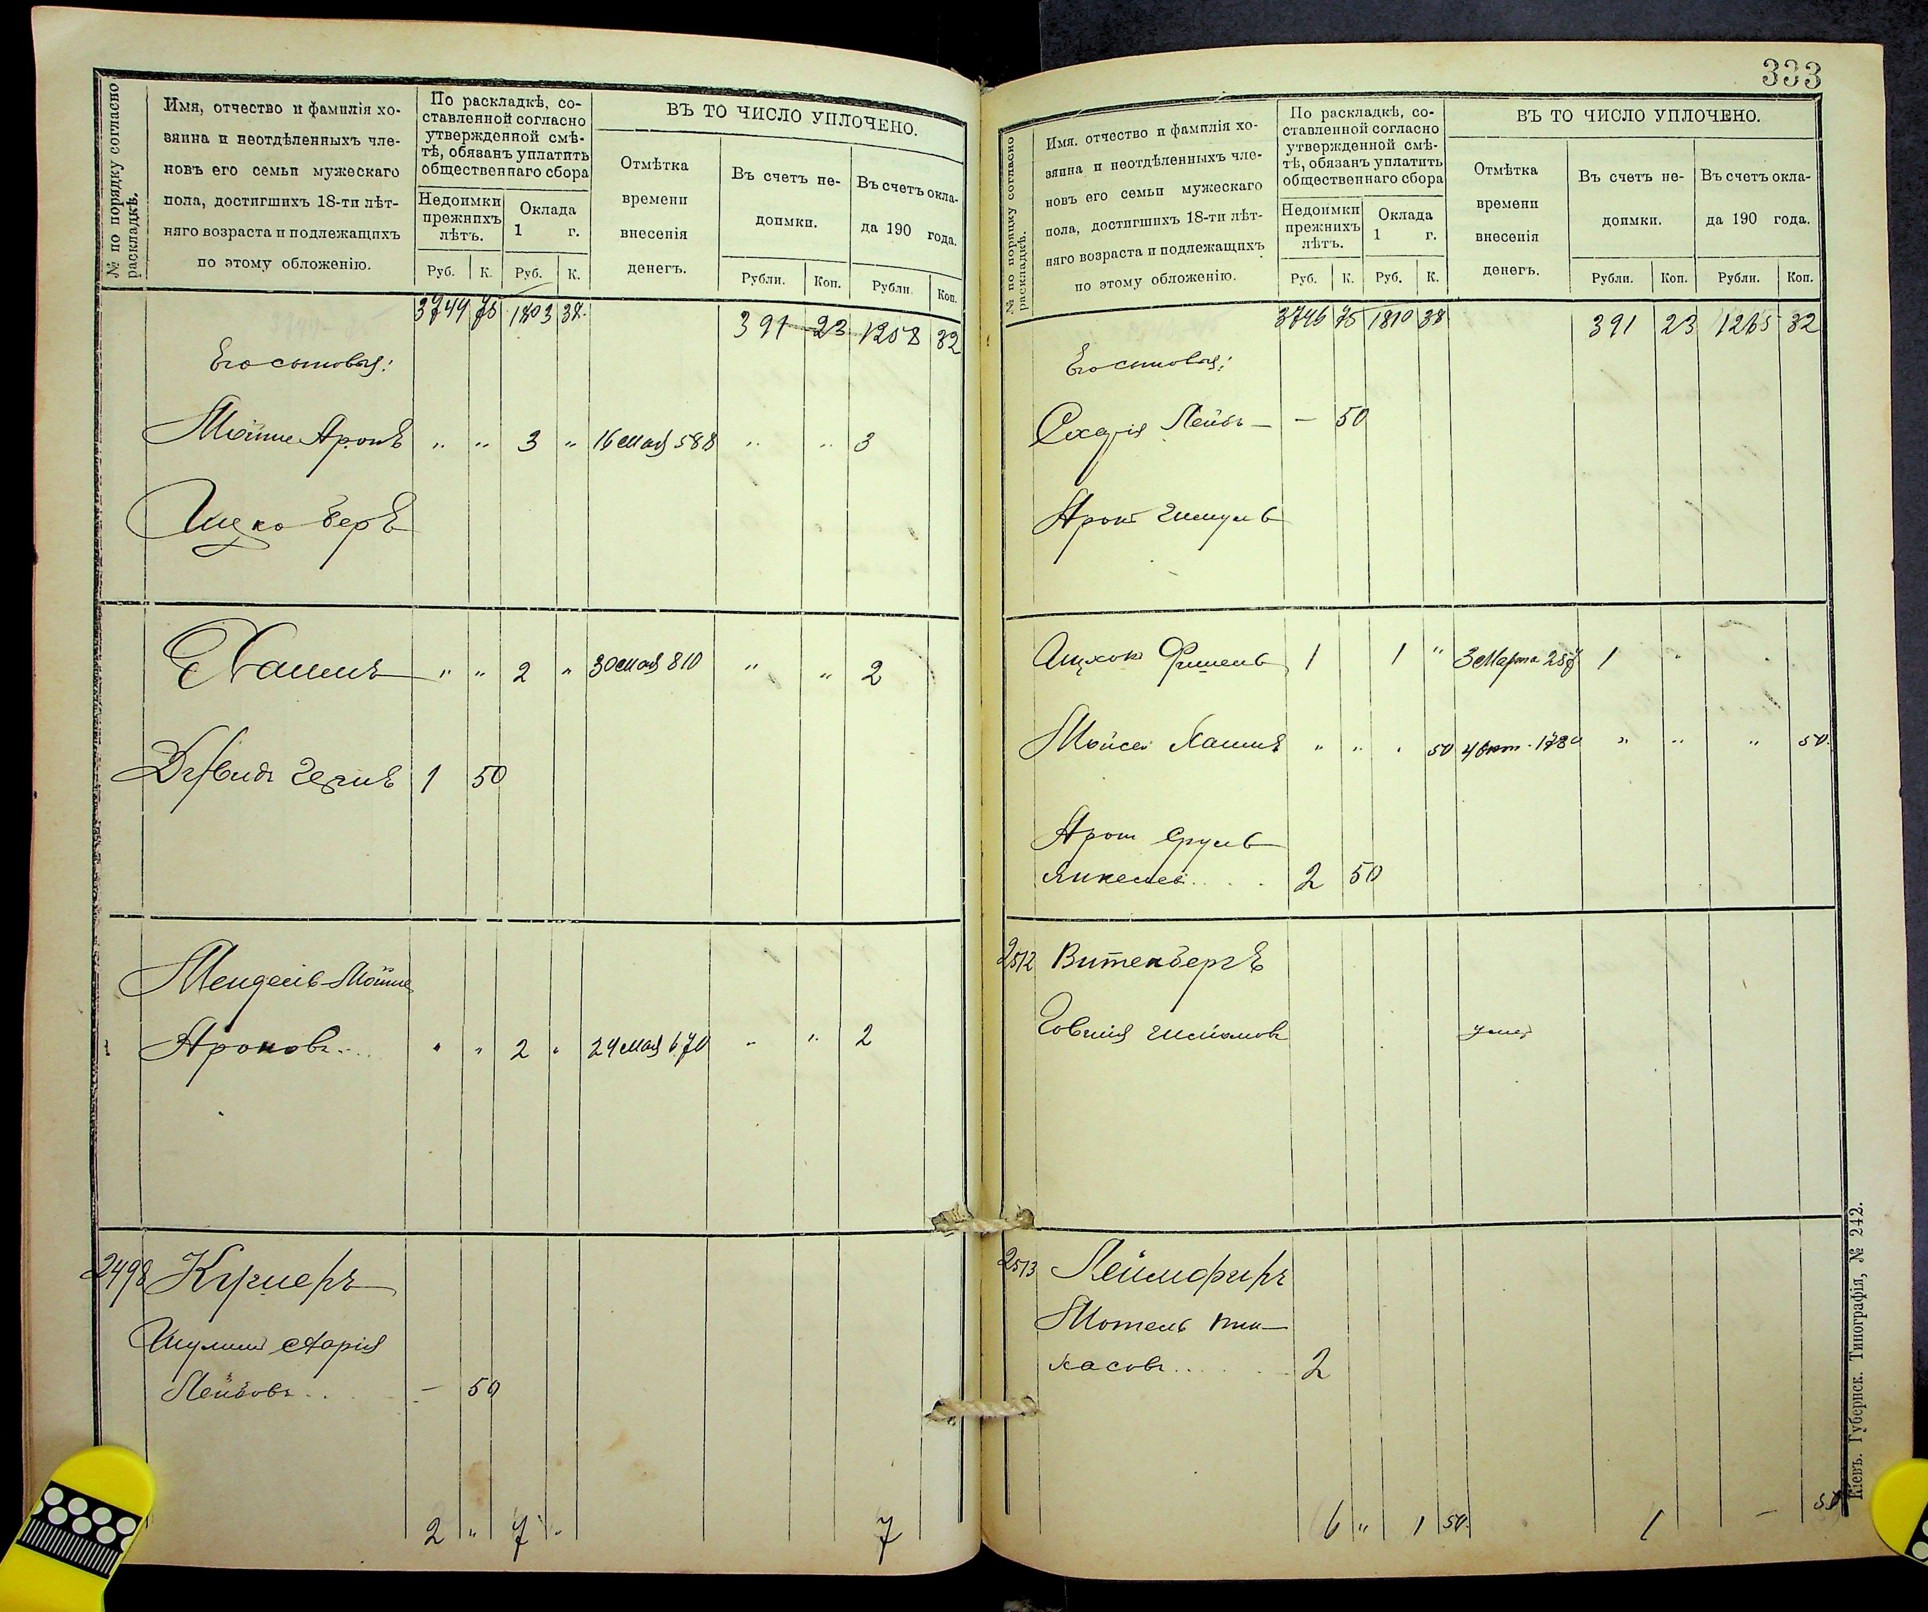 № по порядку согласно
раскладкѣ.
Имя, отчество и фамилія хо-
зяина и неотдѣленныхъ чле-
новъ его семьи мужескаго
пола, достигшихъ 18-ти лѣт-
няго возраста и подлежащихъ
по этому обложенію.
По раскладкѣ, со-
ставленной согласно
утвержденной смѣ-
тѣ, обязанъ уплатить
общественнаго сбора
Недоимки
прежнихъ
лѣтъ.
Оклада
1 г.
Руб. К. Руб. К.
ВЪ ТО ЧИСЛО УПЛОЧЕНО.
Отмѣтка
времени
внесенія
денегъ.
Въ счетъ не-
доимки.
Въ счетъ окла-
да 190 года.
Рубли. Коп. Рубли. Коп.
3744 75 1803 38 391 23 1258 32
Его сыновья:
Мойше Аронъ " " 3 " 16 мая 588 " " 3
Ицко Беръ
Хаимъ " " 2 " 30 мая 810 " " 2
Давидъ 1 50
Мендель-Мойше
Ароновъ... " " 2 " 24 мая 670 " " 2
2498 Кушнеръ
Лейбовъ... — 50
2 " 7 " 7
333
№ по порядку согласно
раскладкѣ.
Имя. отчество и фамилія хо-
зяина и неотдѣленныхъ чле-
новъ его семьи мужескаго
пола, достигшихъ 18-ти лѣт-
няго возраста и подлежащихъ
по этому обложенію.
По раскладкѣ, со-
ставленной согласно
утвержденной смѣ-
тѣ, обязанъ уплатить
общественнаго сбора
Недоимки
прежнихъ
лѣтъ.
Оклада
1 г.
Руб. К. Руб. К.
ВЪ ТО ЧИСЛО УПЛОЧЕНО.
Отмѣтка
времени
внесенія
денегъ.
Въ счетъ не-
доимки.
Въ счетъ окла-
да 190 года.
Рубли. Коп. Рубли. Коп.
3746 75 1810 38 391 23 1265 32
Его сыновья:
Лейбъ — — 50
Аронъ
Фишель 1 1 " 3 Марта 257 1 "
Мойсей Хаимъ " " " 50 4 Окт. 1780 " " " 50
Аронъ Сруль
Янкелев.... 2 50
2512 Витенбергъ
2513
Мотель Пин-
хасовъ... 2
6 " 1 50 1 — 50
Кіевъ. Губернск. Типографія, № 242.